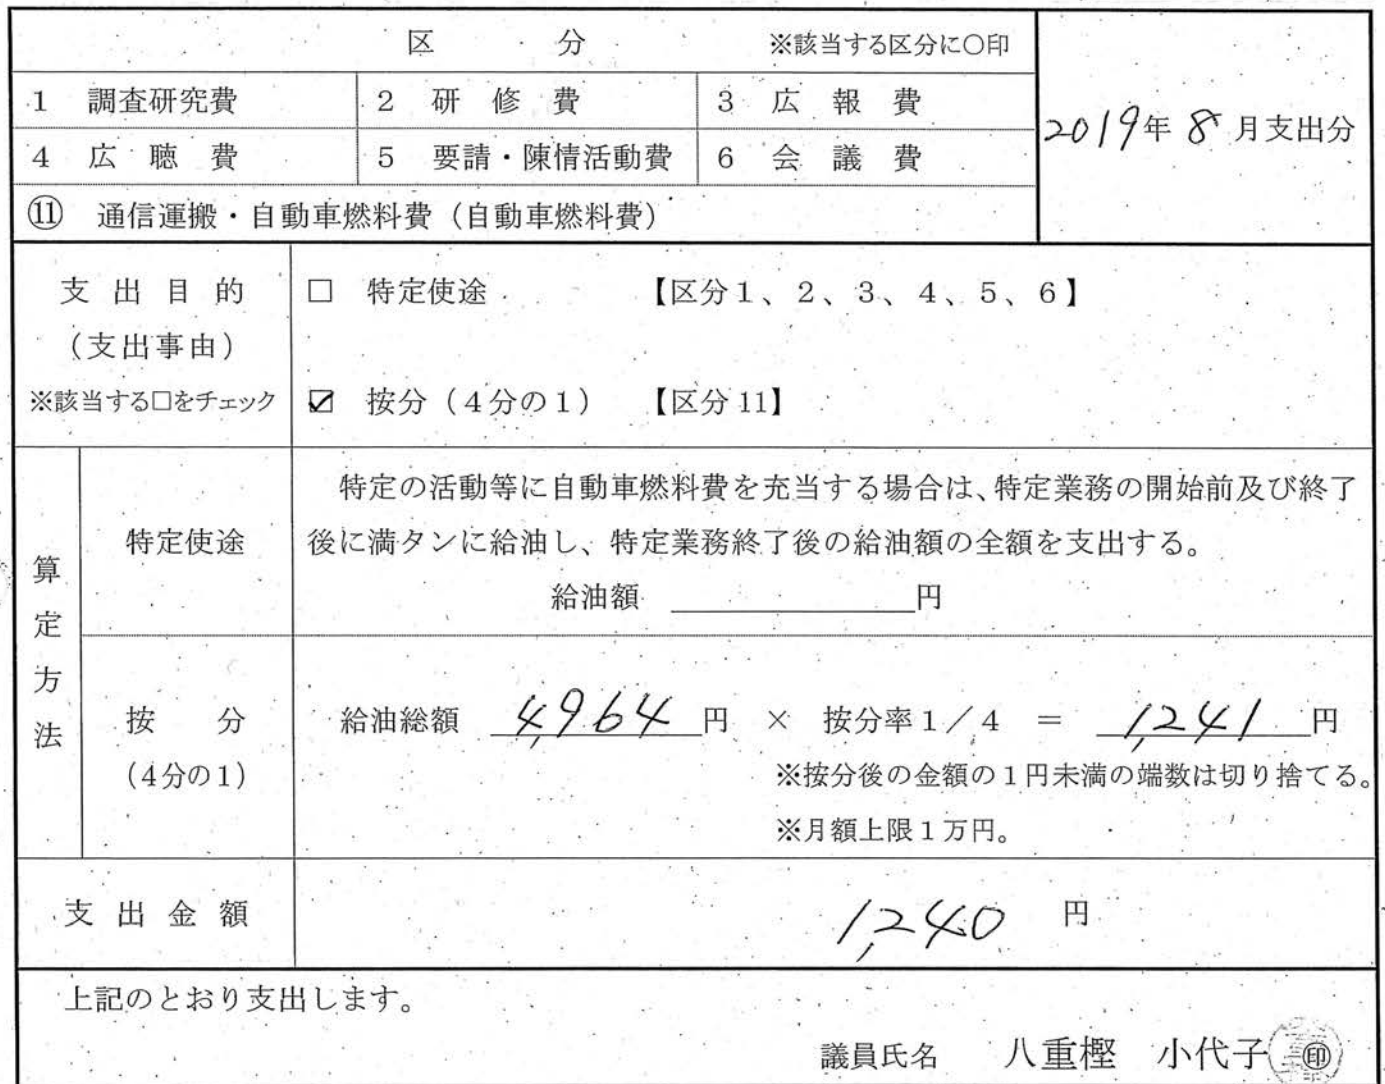 区　分　※該当する区分に〇印
1　調査研究費　2　研修費　3　広報費
2019年8月支出分
4　広聴費　5　要請・陳情活動費　6　会議費
⑪　通信運搬・自動車燃料費（自動車燃料費）
支出目的
（支出事由）
※該当する□をチェック
□　特定使途　【区分1、2、3、4、5、6】
☑　按分（4分の1）　【区分11】
算定方法
特定使途
特定の活動等に自動車燃料費を充当する場合は、特定業務の開始前及び終了
後に満タンに給油し、特定業務終了後の給油額の全額を支出する。
給油額　　　　　円
按分
（4分の1）
給油総額　4,964円　×　按分率1／4　＝　1,241円
※按分後の金額の1円未満の端数は切り捨てる。
※月額上限1万円。
支出金額　1,240　円
上記のとおり支出します。
議員氏名　八重樫　小代子　㊞